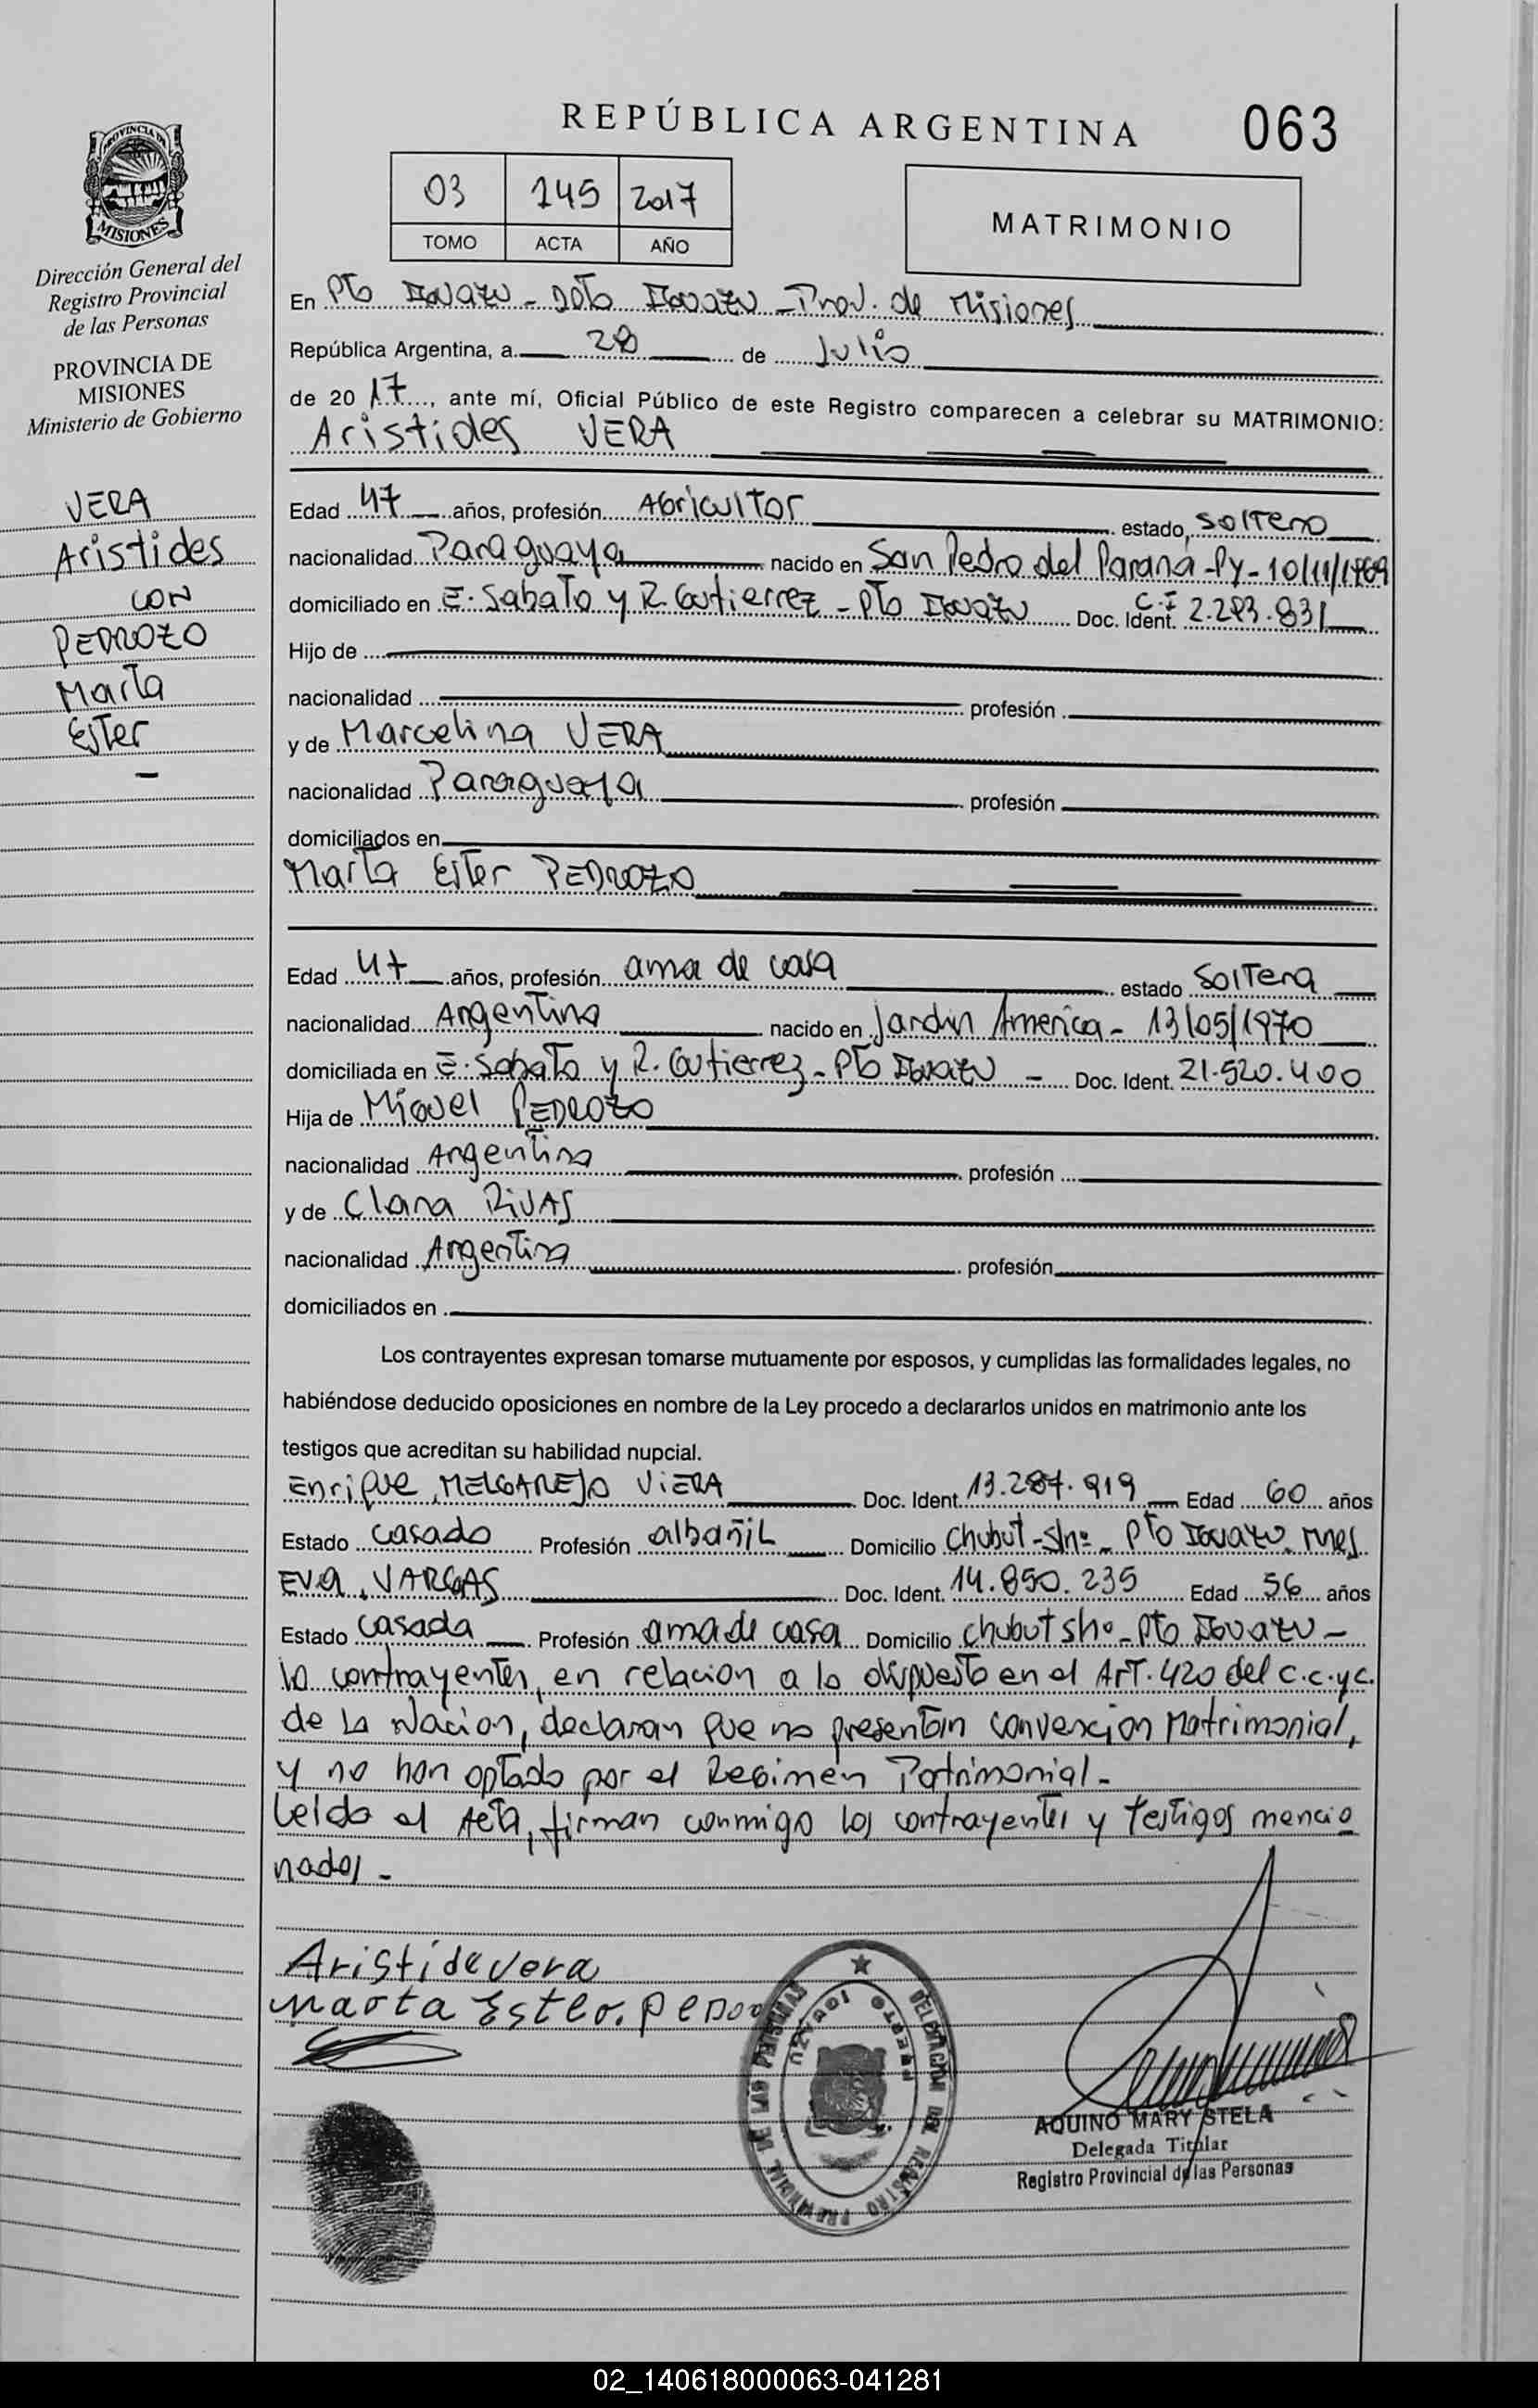 REPÚBLICA ARGENTINA
063
PROVINCIA DE
MISIONES
Dirección General del
Registro Provincial
de las Personas
PROVINCIA DE
MISIONES
Ministerio de Gobierno
VERA
Aristides
CON
PEDROZO
Marta
Ester
03 145 2017
TOMO ACTA AÑO
MATRIMONIO
En Pto Iguazu - Dpto Iguazu - Prov. de Misiones
República Argentina, a 28 de Julio
de 2017, ante mí, Oficial Público de este Registro comparecen a celebrar su MATRIMONIO:
Aristides VERA
Edad 47 años, profesión Agricultor estado soltero
nacionalidad Paraguaya nacido en San Pedro del Paraná - Py - 10/11/1969
domiciliado en E. Sabato y R. Gutierrez - Pto Iguazu Doc. Ident. C.I 2.293.831
Hijo de
nacionalidad profesión
y de Marcelina VERA
nacionalidad Paraguaya profesión
domiciliados en
Marta Ester PEDROZO
Edad 47 años, profesión ama de casa estado Soltera
nacionalidad Argentina nacido en Jardin America - 13/05/1970
domiciliada en E. Sabato y R. Gutierrez - Pto Iguazu - Doc. Ident. 21.520.400
Hija de Miguel PEDROZO
nacionalidad Argentina profesión
y de Clara RIVAS
nacionalidad Argentina profesión
domiciliados en
Los contrayentes expresan tomarse mutuamente por esposos, y cumplidas las formalidades legales, no
habiéndose deducido oposiciones en nombre de la Ley procedo a declararlos unidos en matrimonio ante los
testigos que acreditan su habilidad nupcial.
Enrique, MELGAREJO VIERA Doc. Ident. 13.287.919 Edad 60 años
Estado casado Profesión albañil Domicilio Chubut - s/nº - Pto Iguazu. Mnes
EVA, VARGAS Doc. Ident. 14.850.235 Edad 56 años
Estado casada Profesión ama de casa Domicilio chubut s/nº - Pto Iguazu -
lo contrayentes, en relacion a lo dispuesto en el ArT. 420 del c.c.y c.
de la Nacion, declaran que no presentan convencion Matrimonial,
y no han optado por el Regimen Patrimonial -
Leida el Acta, firman conmigo los contrayentes y testigos mencio
nados -
Aristide vera
marta Ester. pedro
DELEGACIÓN DEL REGISTRO PROVINCIAL DE LAS PERSONAS
PUERTO IGUAZU
AQUINO MARY STELA
Delegada Titular
Registro Provincial de las Personas
02_140618000063-041281